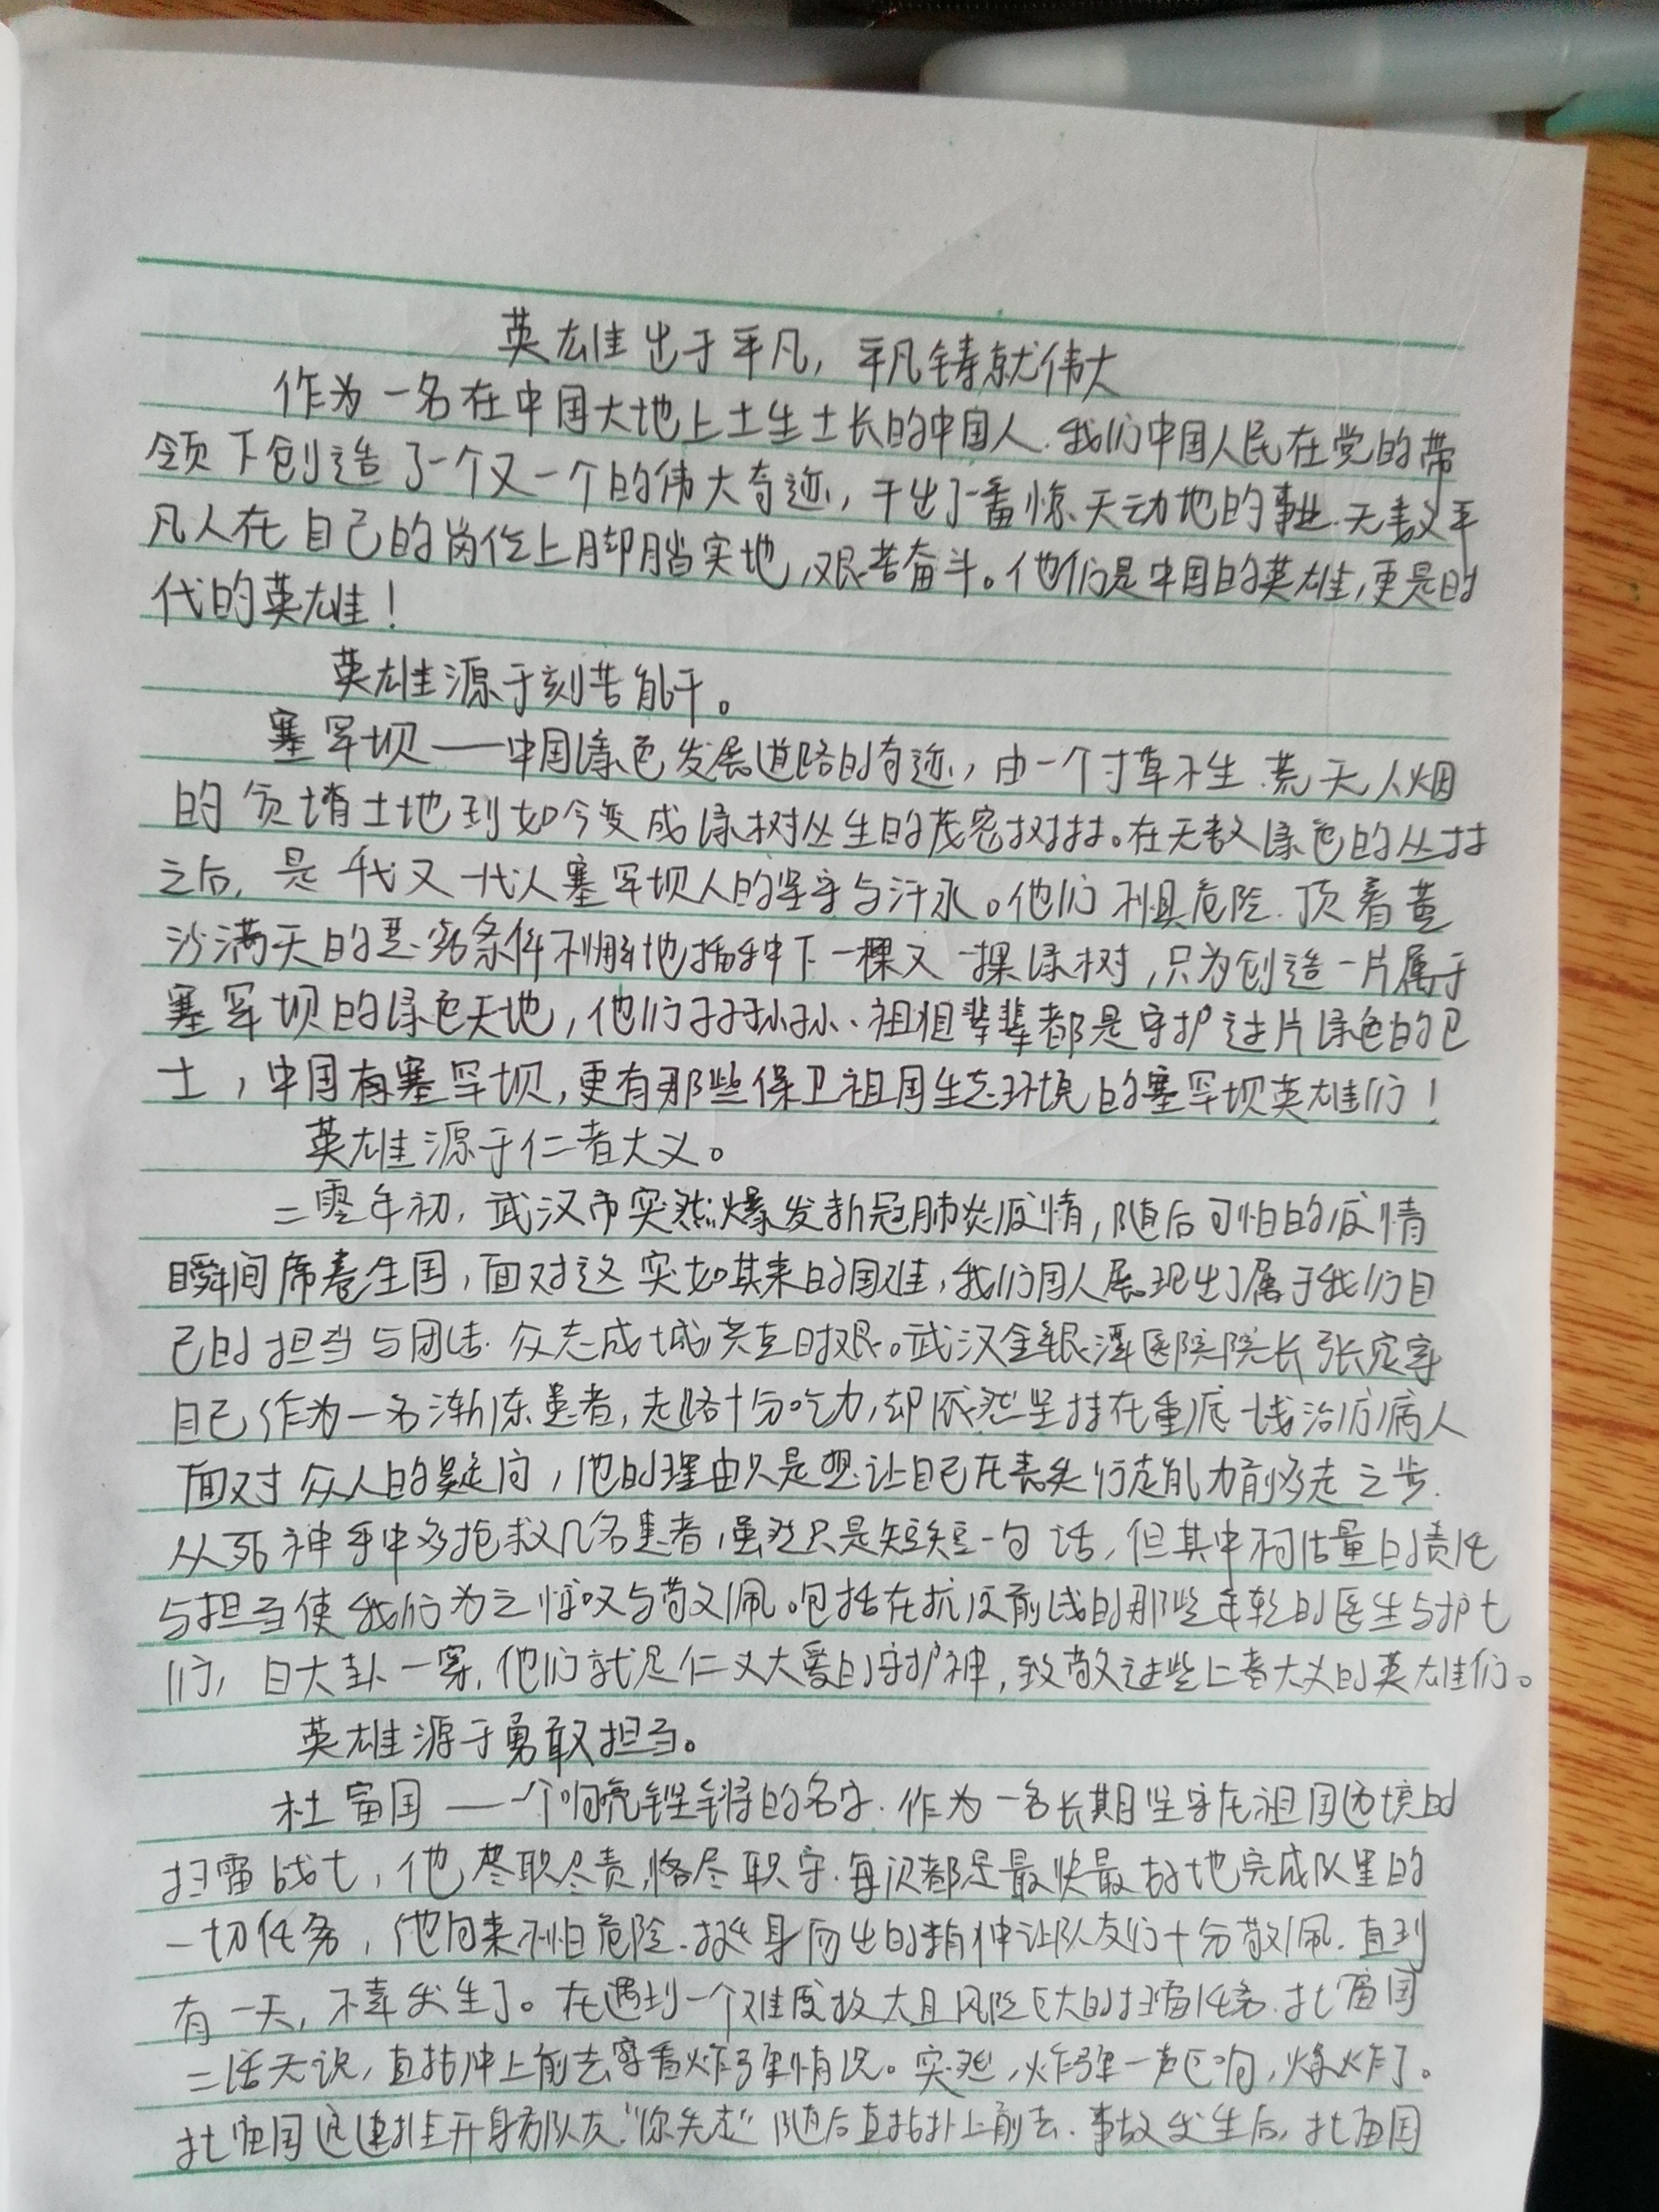 英雄出于平凡，平凡铸就伟大
作为一名在中国大地上土生土长的中国人，我们中国人民在党的带
领下创造了一个又一个的伟大奇迹，干出了一番惊天动地的事业，无数平
凡人在自己的岗位上脚踏实地，艰苦奋斗。他们是中国的英雄，更是时
代的英雄！
英雄源于刻苦能干。
塞罕坝——中国绿色发展道路的奇迹，由一个寸草不生、荒无人烟
的贫瘠土地到如今变成绿树丛生的茂密树林。在无数绿色的丛林
之后，是一代又一代人塞罕坝人的坚守与汗水。他们不惧危险，顶着黄
沙满天的恶劣条件不懈地播种下一棵又一棵绿树，只为创造一片属于
塞罕坝的绿色天地，他们子子孙孙、祖祖辈辈都是守护这片绿色的卫
士，中国有塞罕坝，更有那些保卫祖国生态环境的塞罕坝英雄们！
英雄源于仁者大义。
二零年初，武汉市突然爆发新冠肺炎疫情，随后可怕的疫情
瞬间席卷全国，面对这突如其来的国难，我们国人展现出了属于我们自
己的担当与团结，众志成城，共克时艰。武汉金银潭医院院长张定宇
自己作为一名渐冻患者，走路十分吃力，却依然坚持在重疫一线治疗病人
面对众人的疑问，他的理由只是想让自己在丧失行走能力前多走几步，
从死神手中多抢救几名患者，虽然只是短短一句话，但其中掂量的责任
与担当使我们为之惊叹与敬佩。包括在抗疫前线的那些年轻的医生与护士
们，白大卦一穿，他们就是仁义大爱的守护神，致敬这些仁者大义的英雄们。
英雄源于勇敢担当。
杜富国——一个响亮铿锵的名字，作为一名长期坚守在祖国边境的
扫雷战士，他尽职尽责，恪尽职守，每次都是最快最好地完成队里的
一切任务，他向来不怕危险、挺身而出的精神让队友们十分敬佩，直到
有一天，不幸发生了。在遇到一个难度极大且风险巨大的扫雷任务，杜富国
二话无说，直接冲上前去察看炸弹情况。突然，炸弹一声巨响，爆炸了。
杜富国迅速推开身旁队友，“你先走”随后直接扑上前去，事故发生后，杜富国